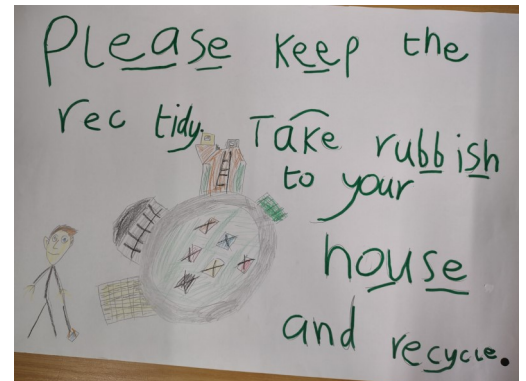 Please keep the
rec tidy. Take rubbish
to your
house
and recycle.